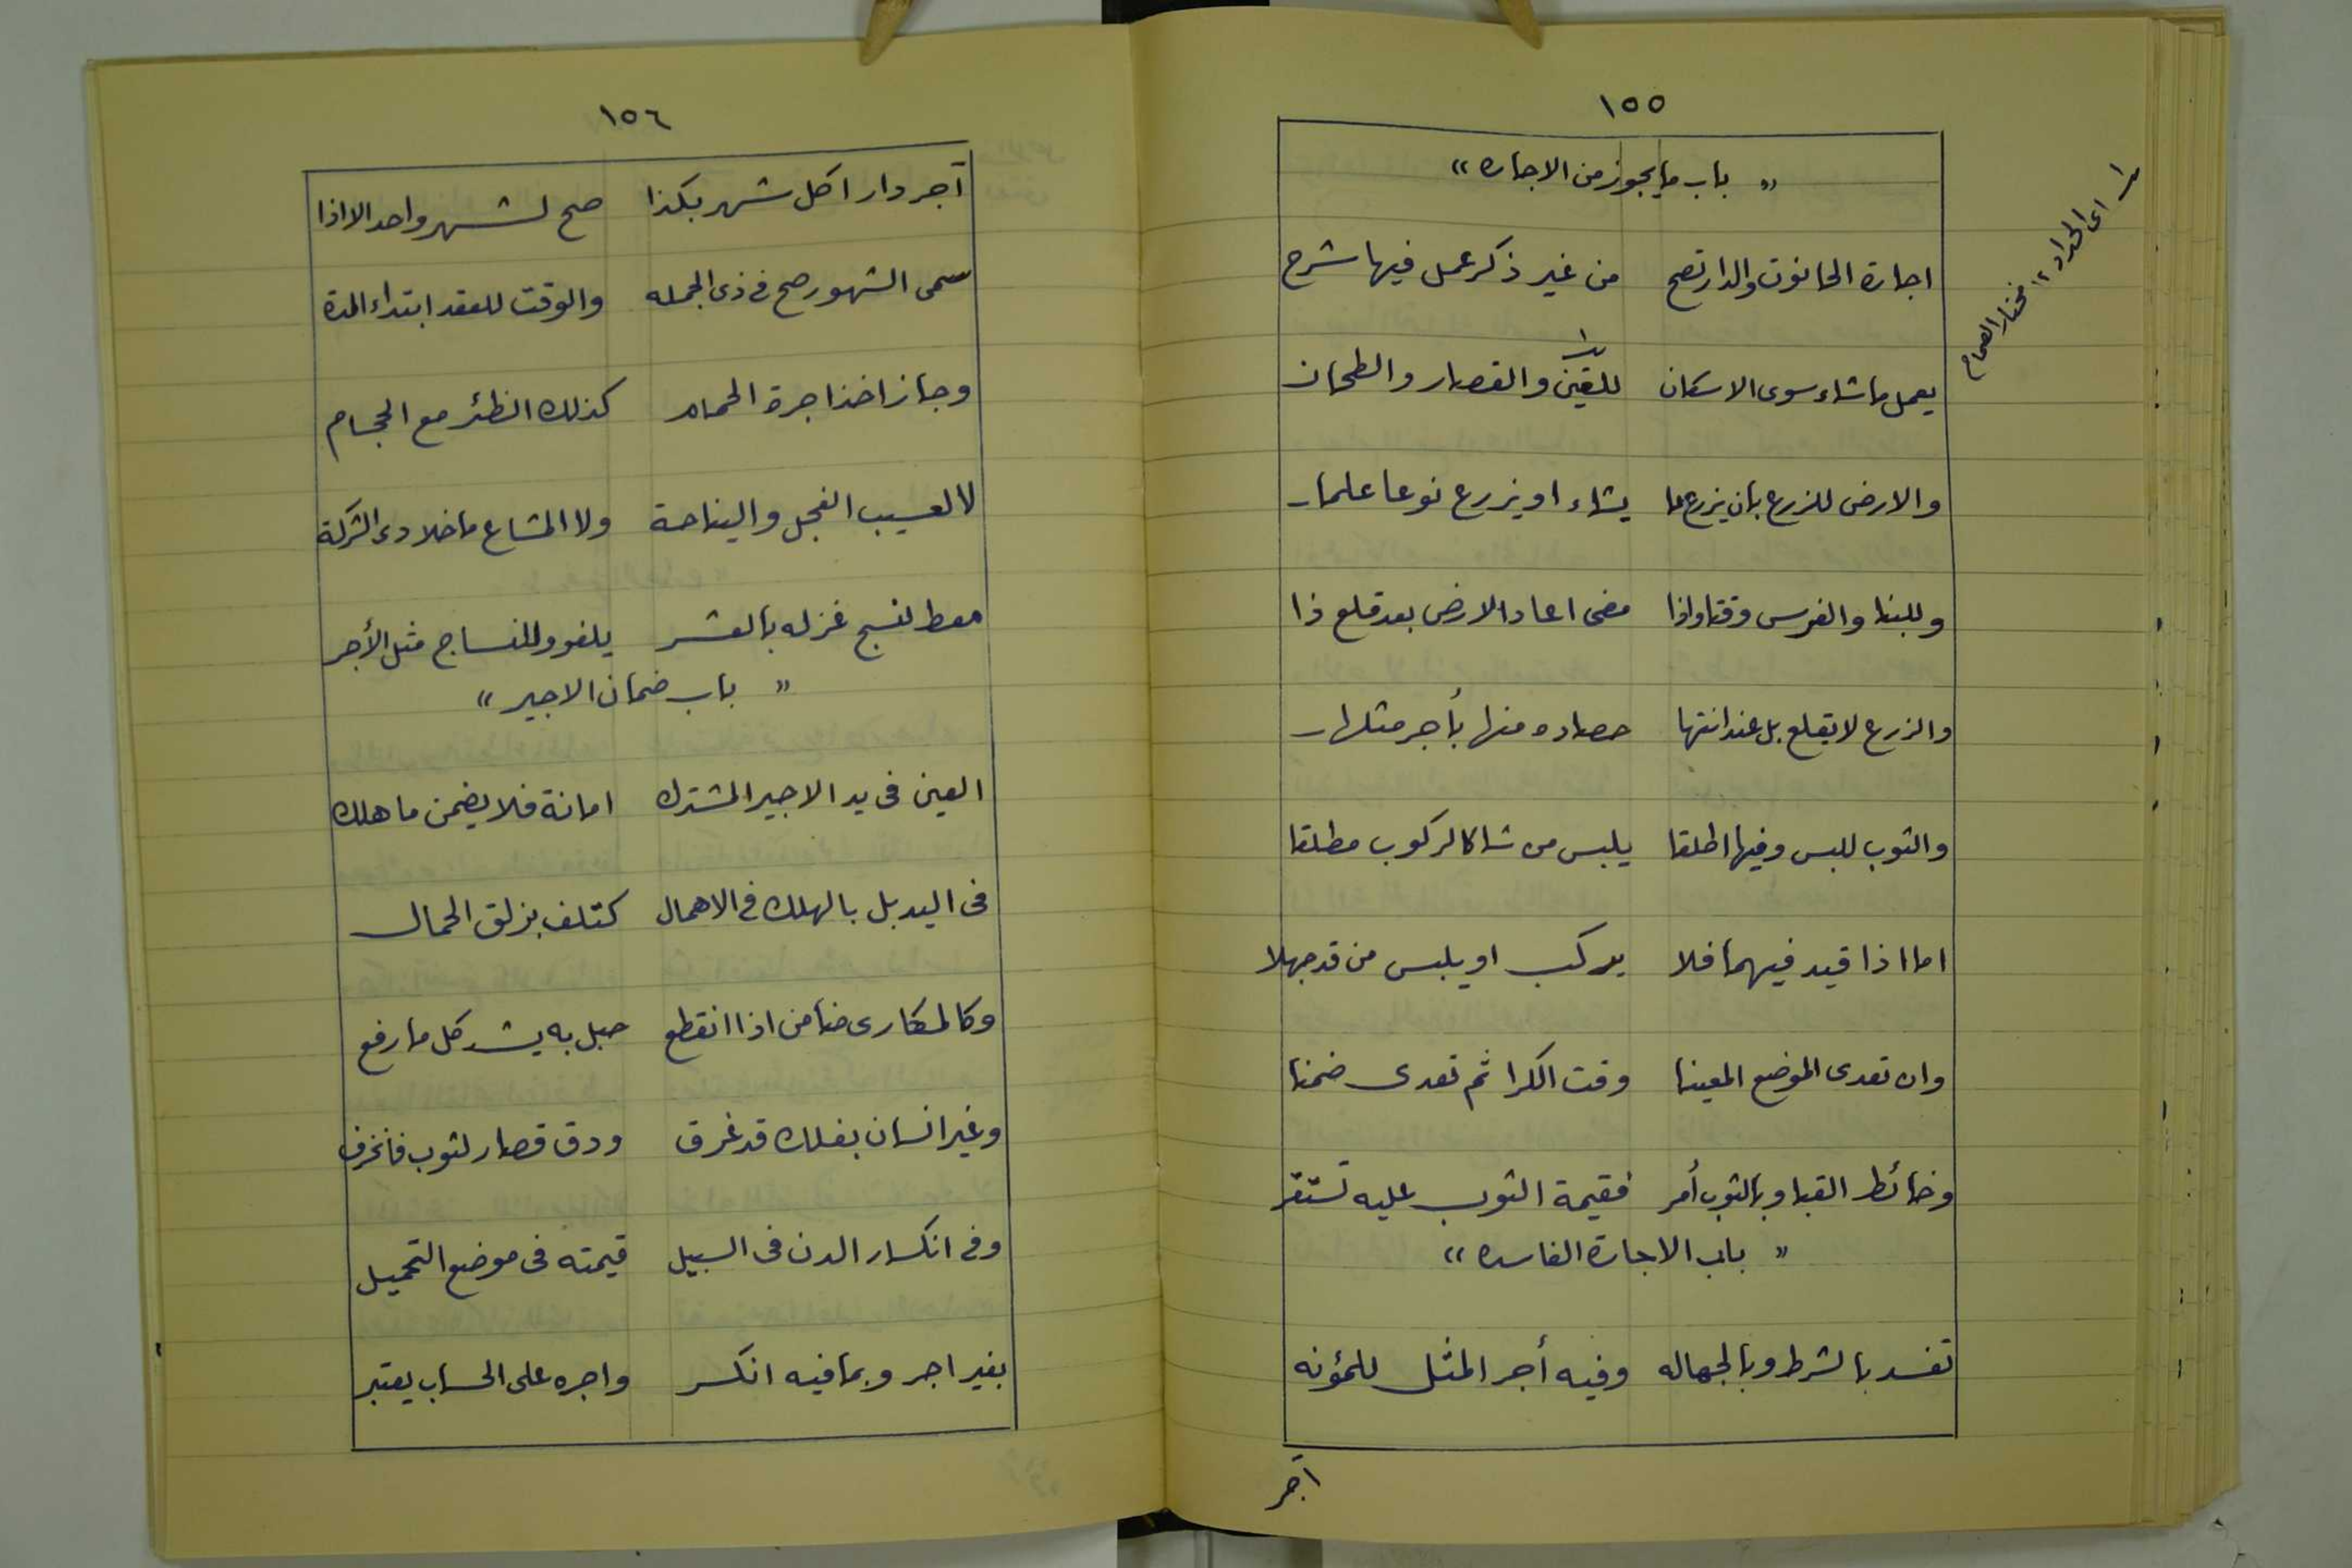 ١٥٥
« باب ما يجوز من الاجاره »
اجارة الحانوت والدار تصح من غير ذكر عمل فيها شرح
يعمل ما شاء سوى الاسكان للقين والقصار والطحان
والارض للزرع بان يزرع ما يشاء او يزرع نوعا علما
وللبنا والغرس وقتا واذا مضى اعاد الارض بعد قلع ذا
والزرع لا يقلع بل عند انتها حصاده منها بأجر مثلها
والثوب للبس وفيها اطلقا يلبس من شا كالركوب مطلقا
اما اذا قيد فيهما فلا يركب او يلبس من قد جهلا
وان تعدى الموضع المعينا وقت الكرا ثم تعدى ضمنا
وخائط القبا وبالثوب أمر فقيمة الثوب عليه تستقر
« باب الاجارة الفاسده »
تفسد بالشرط وبالجهاله وفيه أجر المثل للمؤنه
آجر
اى الحداد ١٢ مختار الصحاح
١٥٦
آجر دارا كل شهر بكذا صح لشهر واحد الا اذا
سمى الشهور صح في ذى الجمله والوقت للعقد ابتداء المدة
وجاز اخذ اجرة الحمام كذلك الظئر مع الحجام
لا لعسيب الفحل والنياحة ولا المشاع ما خلا ذى الشركة
معط لنسج غزله بالعشر يلغو وللنساج مثل الأجر
« باب ضمان الاجير »
العين فى يد الاجير المشترك امانة فلا يضمن ما هلك
فى اليد بل بالهلك في الاهمال كتلف بزلق الحمال
وكالمكارى ضامن اذا انقطع حبل به يشد كل ما رفع
وغير انسان بفلك قد غرق ودق قصار لثوب فانخرق
وفي انكسار الدن فى السبيل قيمته فى موضع التحميل
بغير اجر وبما فيه انكسر واجره على الحساب يعتبر